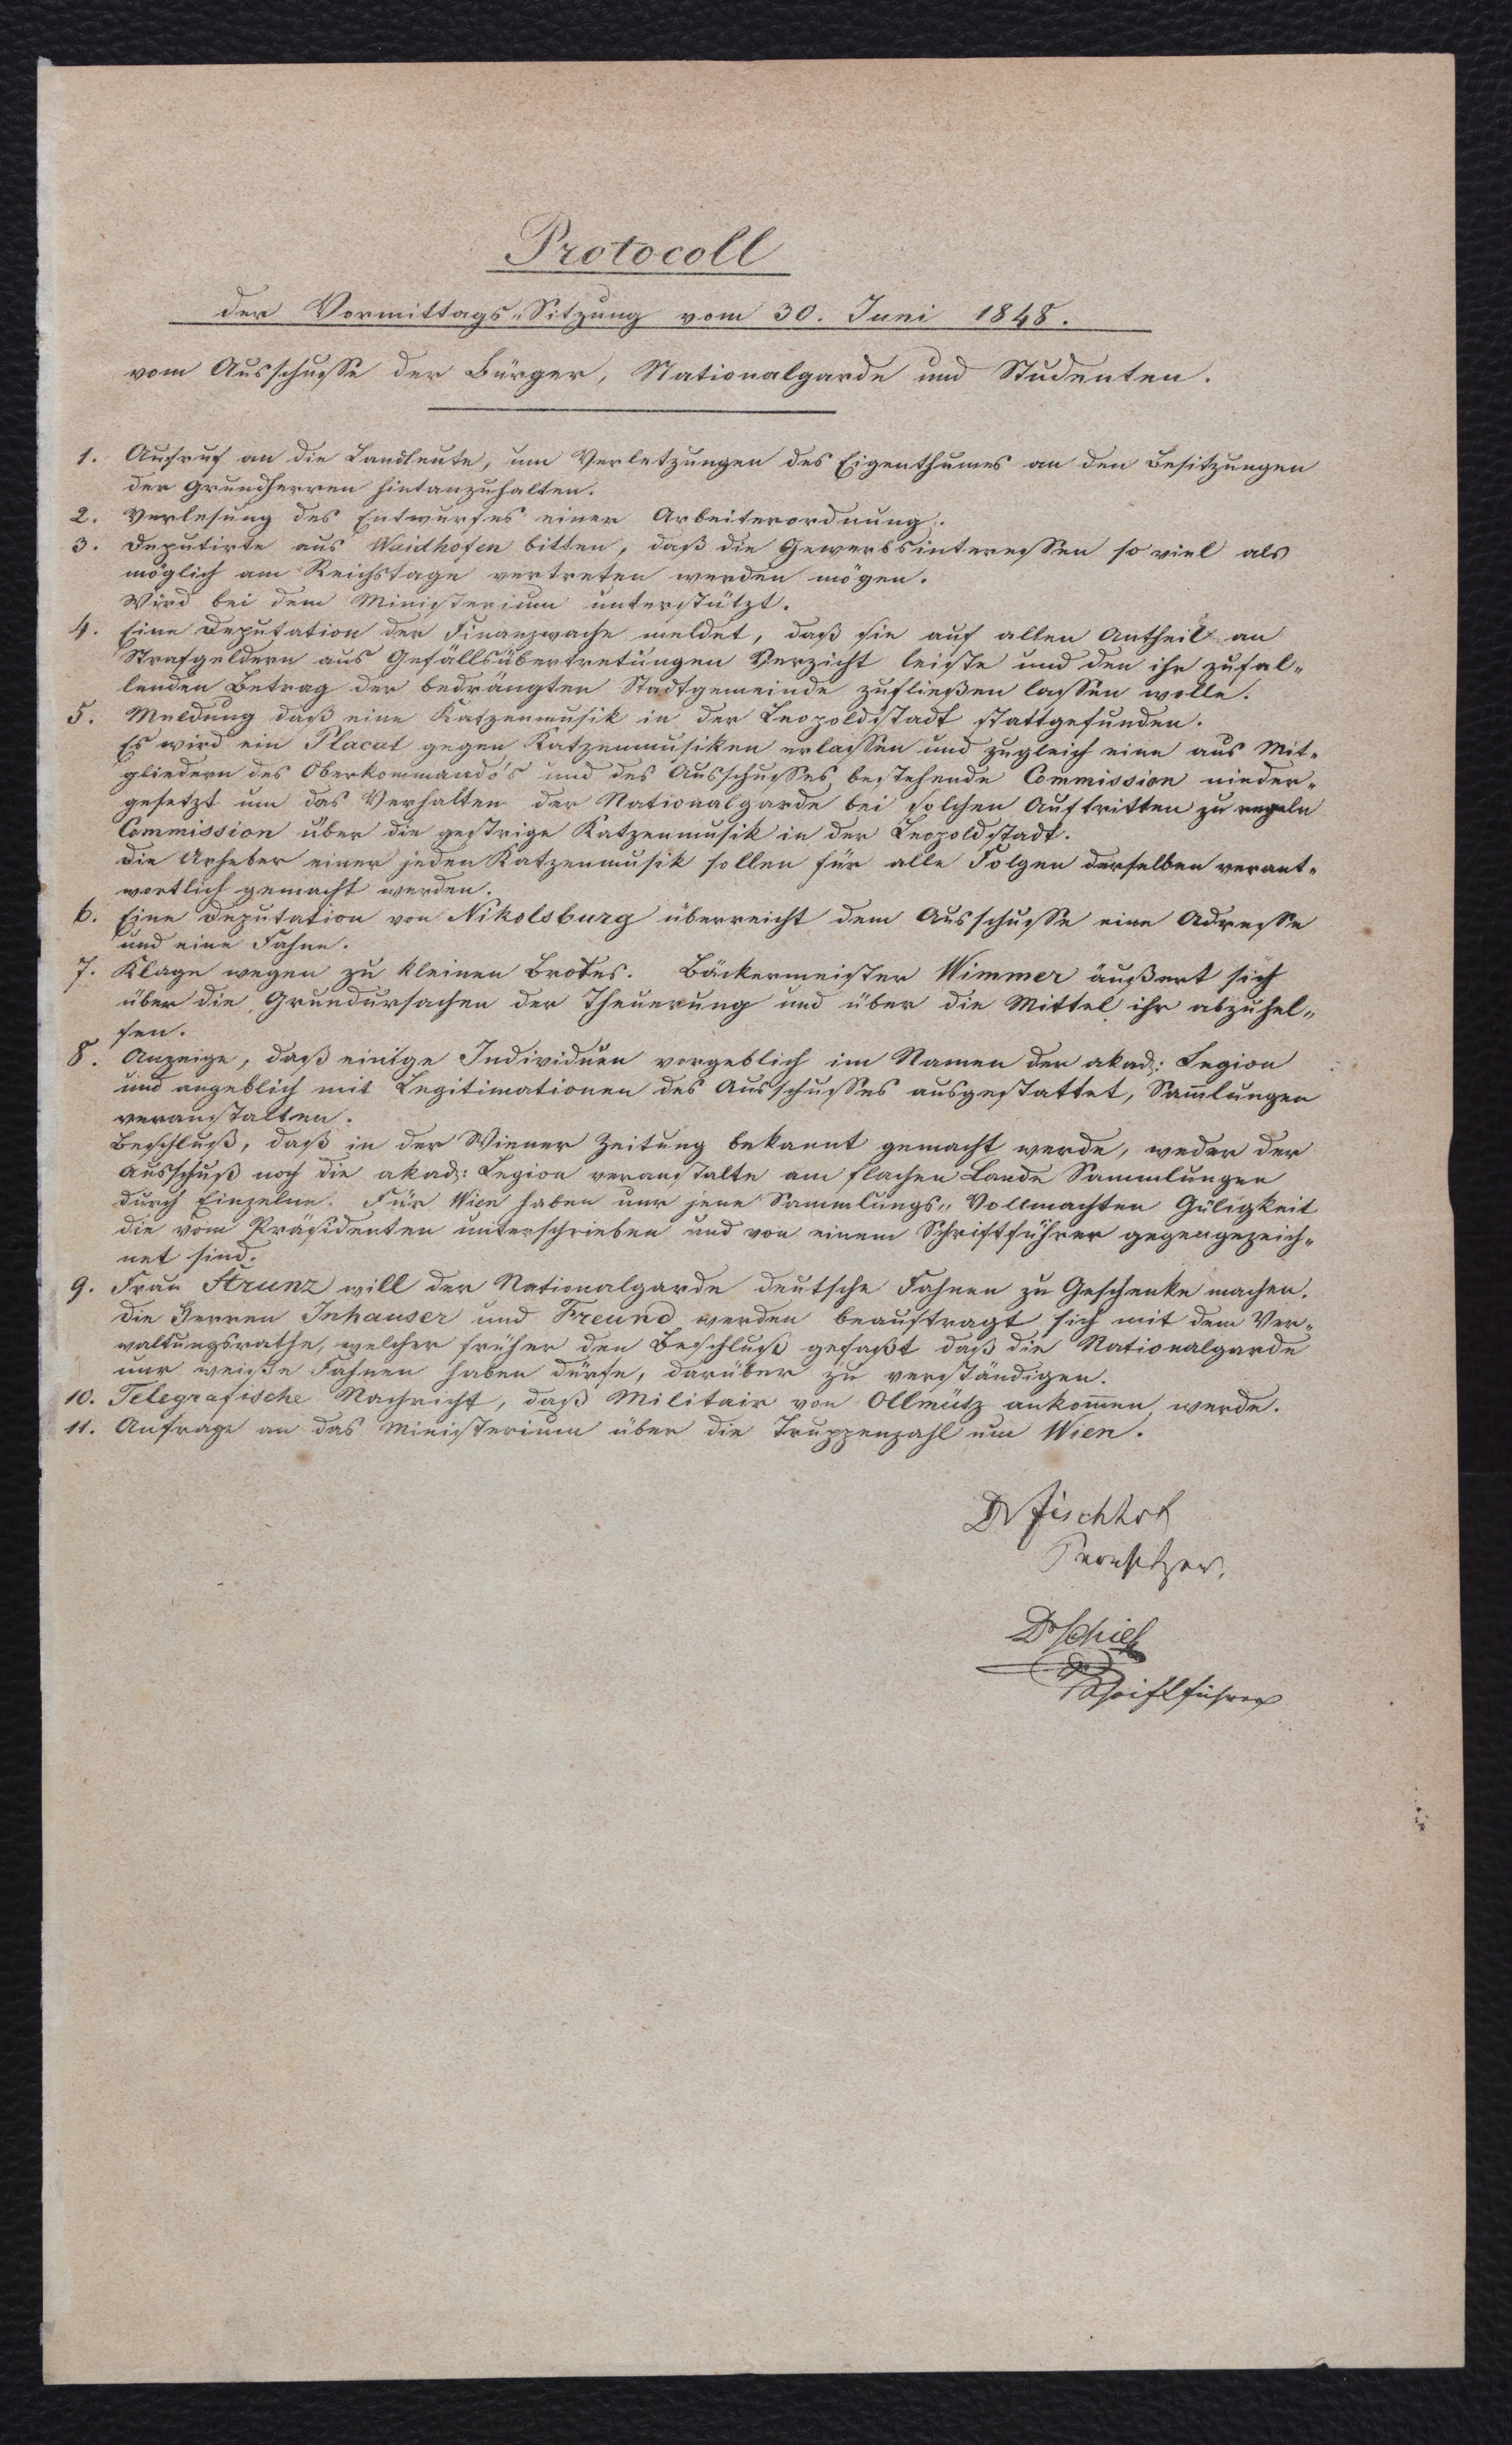 Protocoll
der Vormittags-Sitzung vom 30. Juni 1848.
vom Ausschusse der Bürger, Nationalgarde und Studenten.
1. Aufruf an die Landleute, um Verletzungen des Eigenthumes an den Besitzungen
der Grundherren hintanzuhalten.
2. Verlesung des Entwurfes einer Arbeiterordnung.
3. Deputirte aus Waidhofen bitten, daß die Gewerbsinteressen so viel als
möglich am Reichstage vertreten werden mögen.
Wird bei dem Ministerium unterstützt.
4. Eine Deputation der Finanzwache meldet, daß sie auf allen Antheil an
Strafgeldern aus Gefällsübertretungen Verzicht leiste und den ihr zufal-
lenden Betrag der bedrängten Stadtgemeinde zufließen lassen wolle.
5. Meldung daß eine Katzenmusik in der Leopoldstadt stattgefunden.
Es wird ein Placat gegen Katzenmusiken erlassen und zugleich eine aus Mit-
gliedern des Oberkommando's und des Ausschusses bestehende Commission nieder-
gesetzt um das Verhalten der Nationalgarde bei solchen Auftritten zu regeln
Commission über die gestrige Katzenmusik in der Leopoldstadt.
Die Urheber einer jeden Katzenmusik sollen für alle Folgen derselben verant-
wortlich gemacht werden.
6. Eine Deputation von Nikolsburg überreicht dem Ausschusse eine Adresse
und eine Fahne.
7. Klage wegen zu kleinen Brotes. Bäckermeister Wimmer äußert sich
über die Grundursachen der Theuerung und über die Mittel ihr abzuhel-
fen.
8. Anzeige, daß einige Individuen vorgeblich im Namen der akad: Legion
und angeblich mit Legitimationen des Ausschusses ausgestattet, Sam̅lungen
veranstalten.
Beschluß, daß in der Wiener Zeitung bekannt gemacht werde, weder der
Ausschuß noch die akad: Legion veranstalte am flachen Lande Sammlungen
durch Einzelne. Für Wien haben nur jene Sammlungs-Vollmachten Güligkeit
die vom Präsidenten unterschrieben und von einem Schriftführer gegengezeich-
net sind.
9. Frau Strunz will der Nationalgarde deutsche Fahnen zu Geschenke machen.
Die Herren Inhauser und Freund werden beauftragt sich mit dem Ver-
waltungsrathe, welcher früher den Beschluß gefaßt daß die Nationalgarde
nur weiße Fahnen haben dürfe, darüber zu verständigen.
10. Telegrafische Nachricht, daß Militair von Ollmütz ankom̅en werde.
11. Anfrage an das Ministerium über die Truppenzahl um Wien.
Dr Fischhof
Dr Schiel
Schriftführer